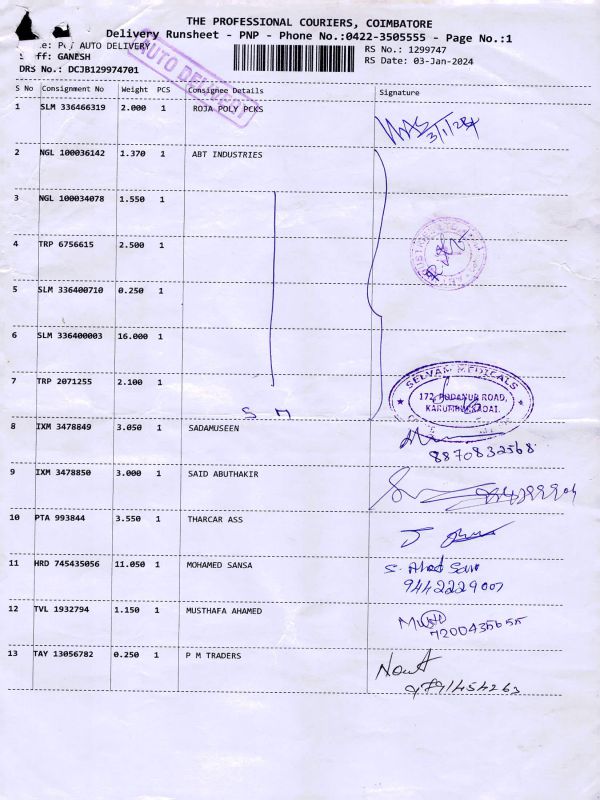 THE PROFESSIONAL COURIERS, COIMBATORE
Delivery Runsheet - PNP - Phone No.:0422-3505555 - Page No.:1
AUTO DELIVERY
RS No.: 1299747
GANESH
RS Date: 03-Jan-2024
DRS No.: DCJB129974701
AUTO DELIVERY
S No Consignment No Weight PCS Consignee Details Signature
1 SLM 336466319 2.000 1 ROJA POLY PCKS
3/1/24
2 NGL 100036142 1.370 1 ABT INDUSTRIES
3 NGL 100034078 1.550 1
4 TRP 6756615 2.500 1
5 SLM 336400710 0.250 1
6 SLM 336400003 16.000 1
7 TRP 2071255 2.100 1
SELVAM MEDICALS
172, PODANUR ROAD,
KARUMBUKKADAI.
S M
8 IXM 3478849 3.050 1 SADAMUSEEN
8870832568
9 IXM 3478850 3.000 1 SAID ABUTHAKIR
10 PTA 993844 3.550 1 THARCAR ASS
11 HRD 745435056 11.050 1 MOHAMED SANSA
9442229007
12 TVL 1932794 1.150 1 MUSTHAFA AHAMED
7200435655
13 TAY 13056782 0.250 1 P M TRADERS
9791454263